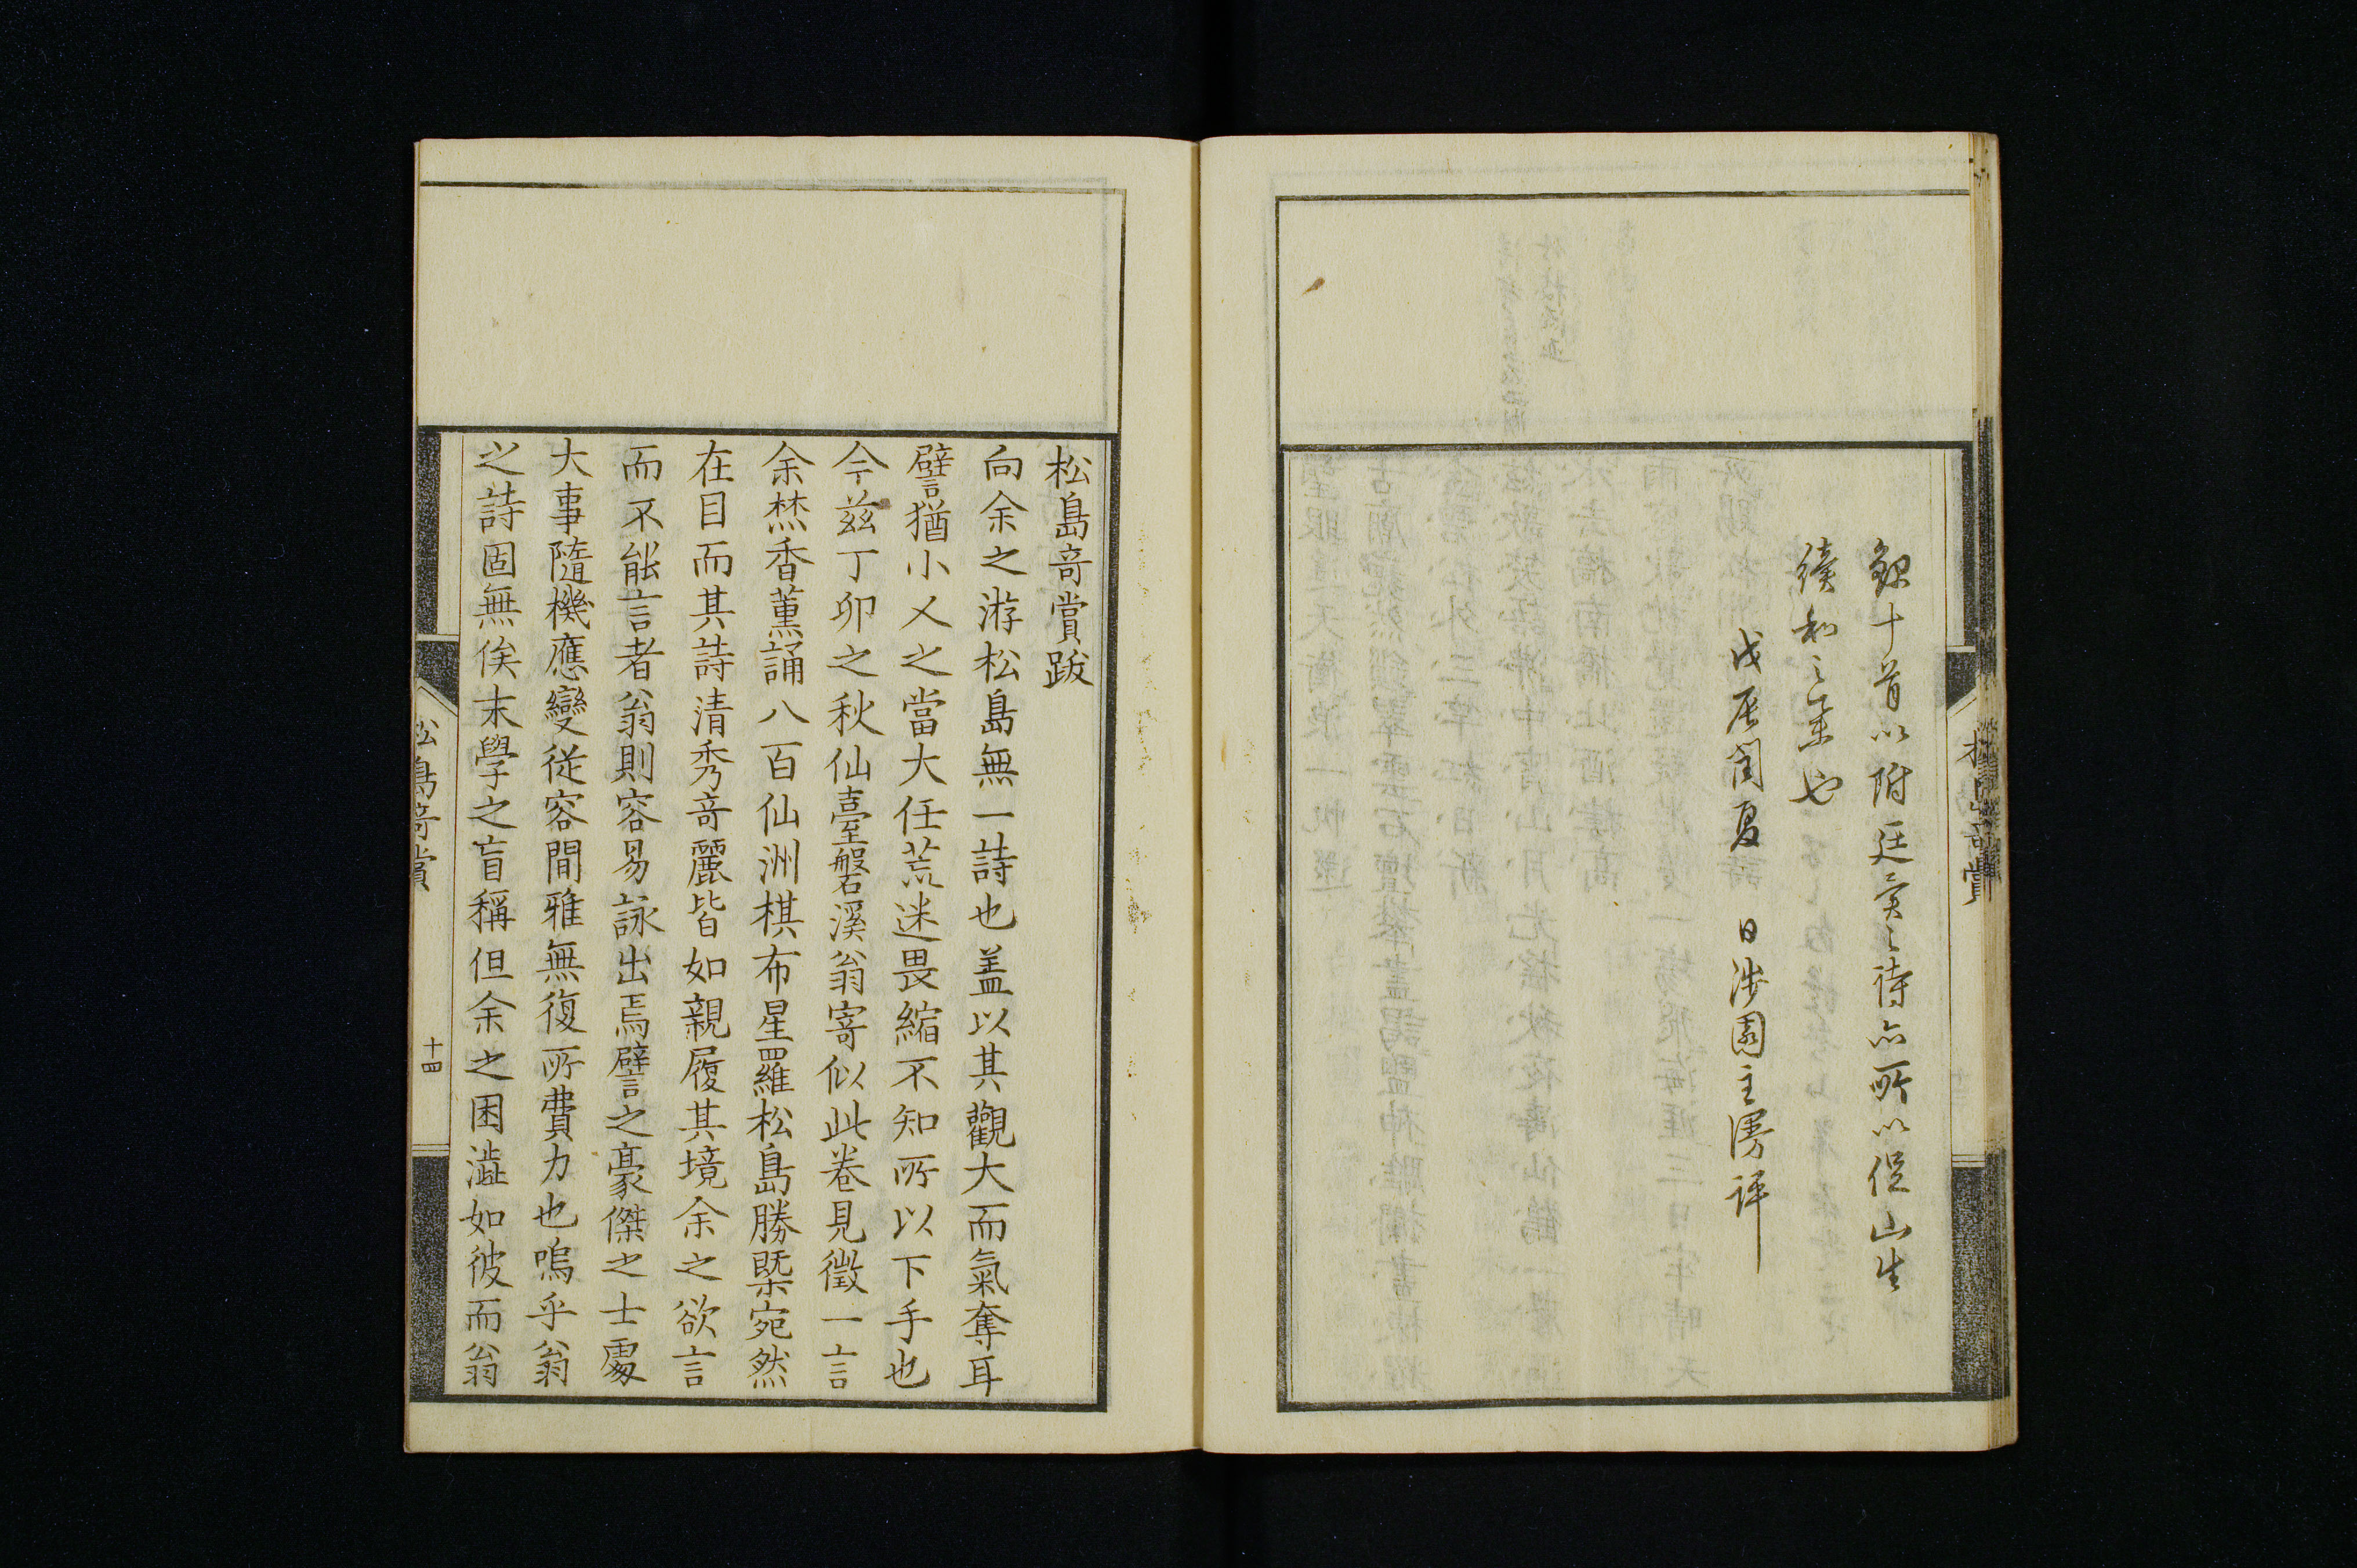 錄十首以附廷寄之待亦所以促山生
續和之業也
戊辰閏夏 日涉園主漫評
松島奇賞
松島竒賞跋
向余之游松島無一詩也盖以其觀大而氣奪耳
譬猶小人之當大任荒迷畏縮不知所以下手也
今兹丁卯之秋仙臺磐溪翁寄似此卷見徵一言
余焚香薫誦八百仙洲棋布星羅松島勝槩宛然
在目而其詩清秀竒麗皆如親履其境余之欲言
而不能言者翁則容易詠出焉譬之豪傑之士處
大事隨機應變従容間雅無復所費力也嗚乎翁
之詩固無俟末學之盲稱但余之困澁如彼而翁
松島竒賞
十四